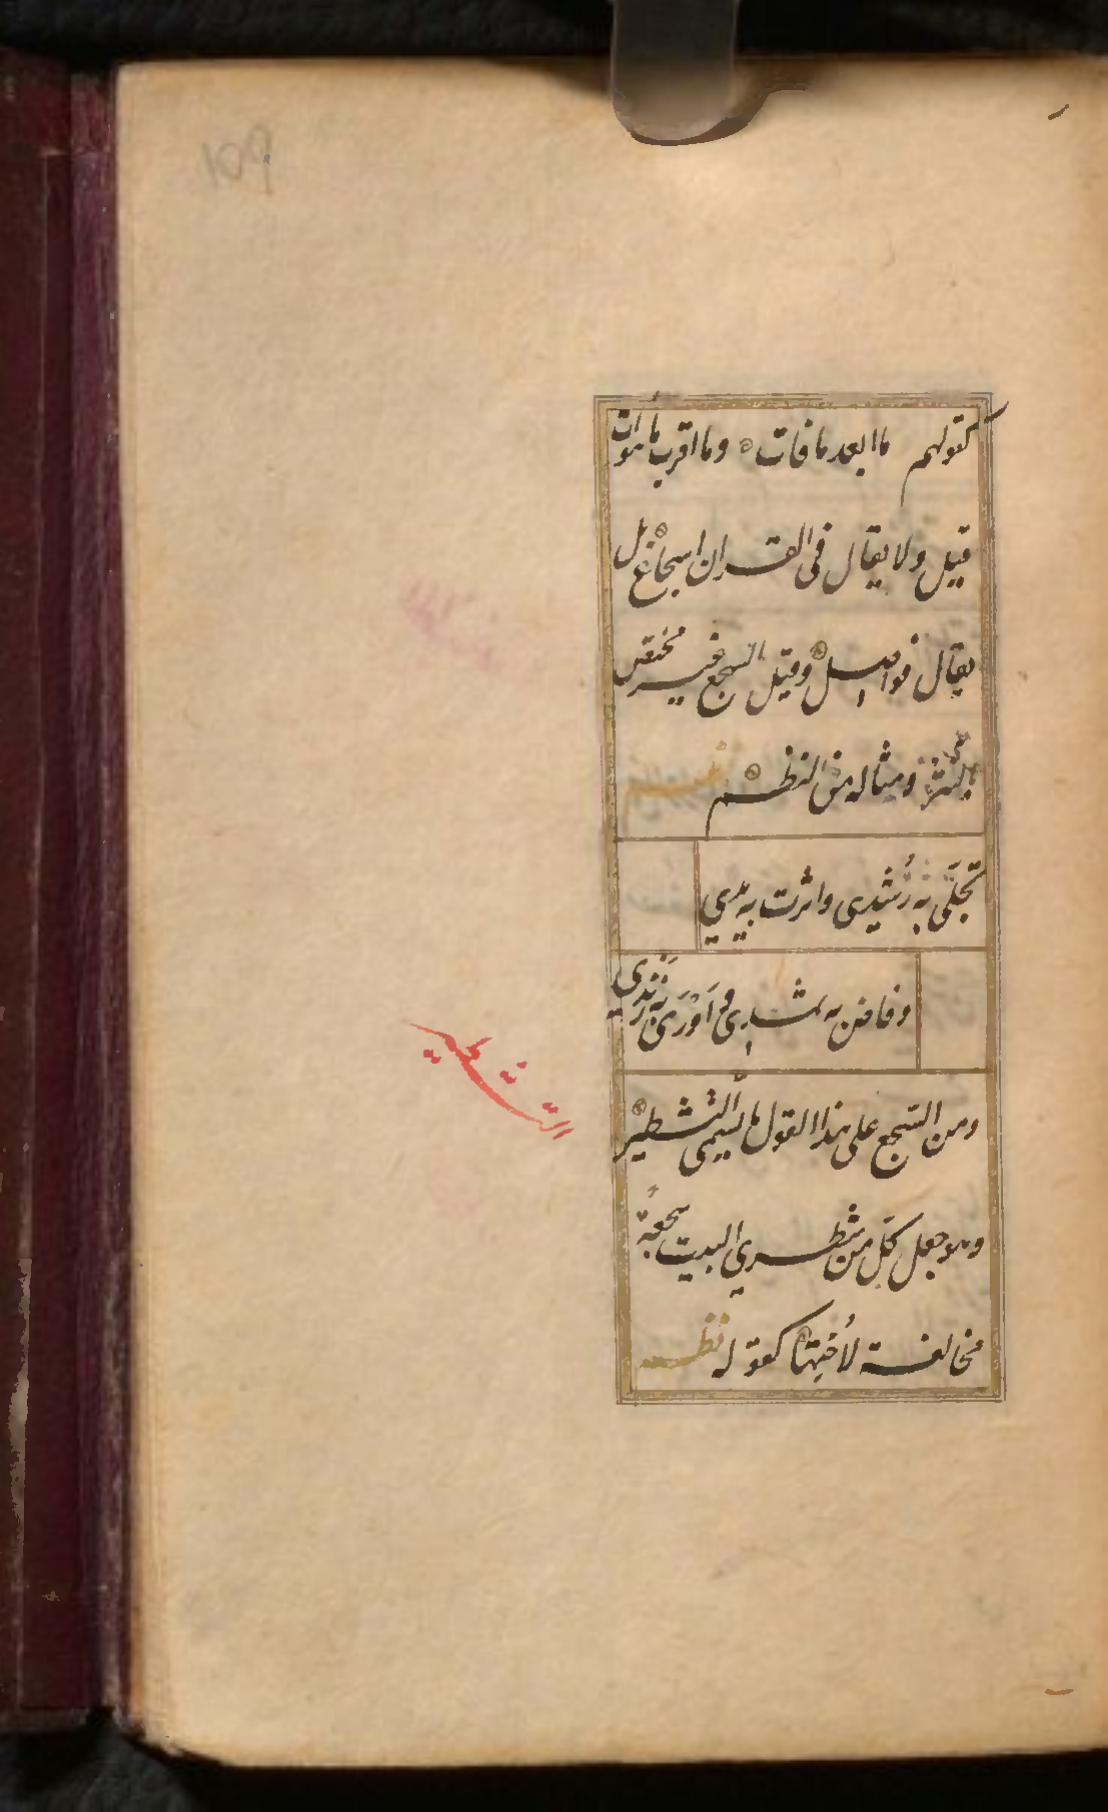 109
كقولهم ما ابعد ما فات وما اقرب ما هو ات
قيل ولا يقال في القران اسجاع بل
يقال فواصل وقيل السجع غير مختص
بالنثر ومثاله من النظم
تجلّى به رُشدي واثرت به يدي
وفاض به ثمدي و اَوْرَى به زَندي
ومن السّجع على هذا القول ما يسمى التّشطير
التشطير
وهو جعل كلّ من شطري البيت سجعةً
مخالفة لاُختها كقوله نظم